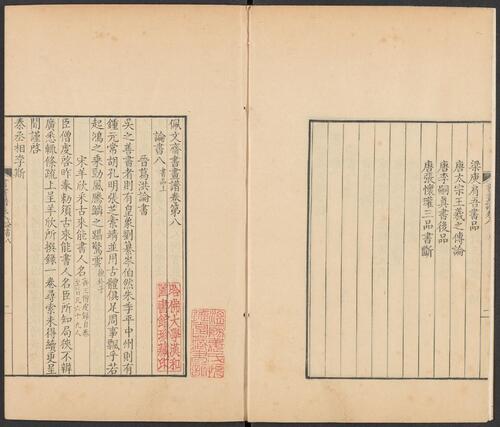 梁庾肩吾書品
唐太宗王羲之傳論
唐李嗣真書後品
唐張懷瓘三品書斷
佩文齋書畫譜卷第八
論書八 書品上
晉葛洪論書
吳之善書者則有皇象劉纂岑伯然朱季平中州則有
鍾元常胡孔明張芝索靖並用古體俱足周事飄乎若
起鴻之乘勁風騰鱗之躡驚雲 抱朴子
宋羊欣采古來能書人名 齊王僧虔錄自秦至晉凡六十九人
臣僧虔啓昨奉勅須古來能書人名臣所知局狹不辯
廣悉輒條疏上呈羊欣所撰錄一卷尋索未得續更呈
聞謹啓
秦丞相李斯
哈佛大學漢和
圖書館珍藏印